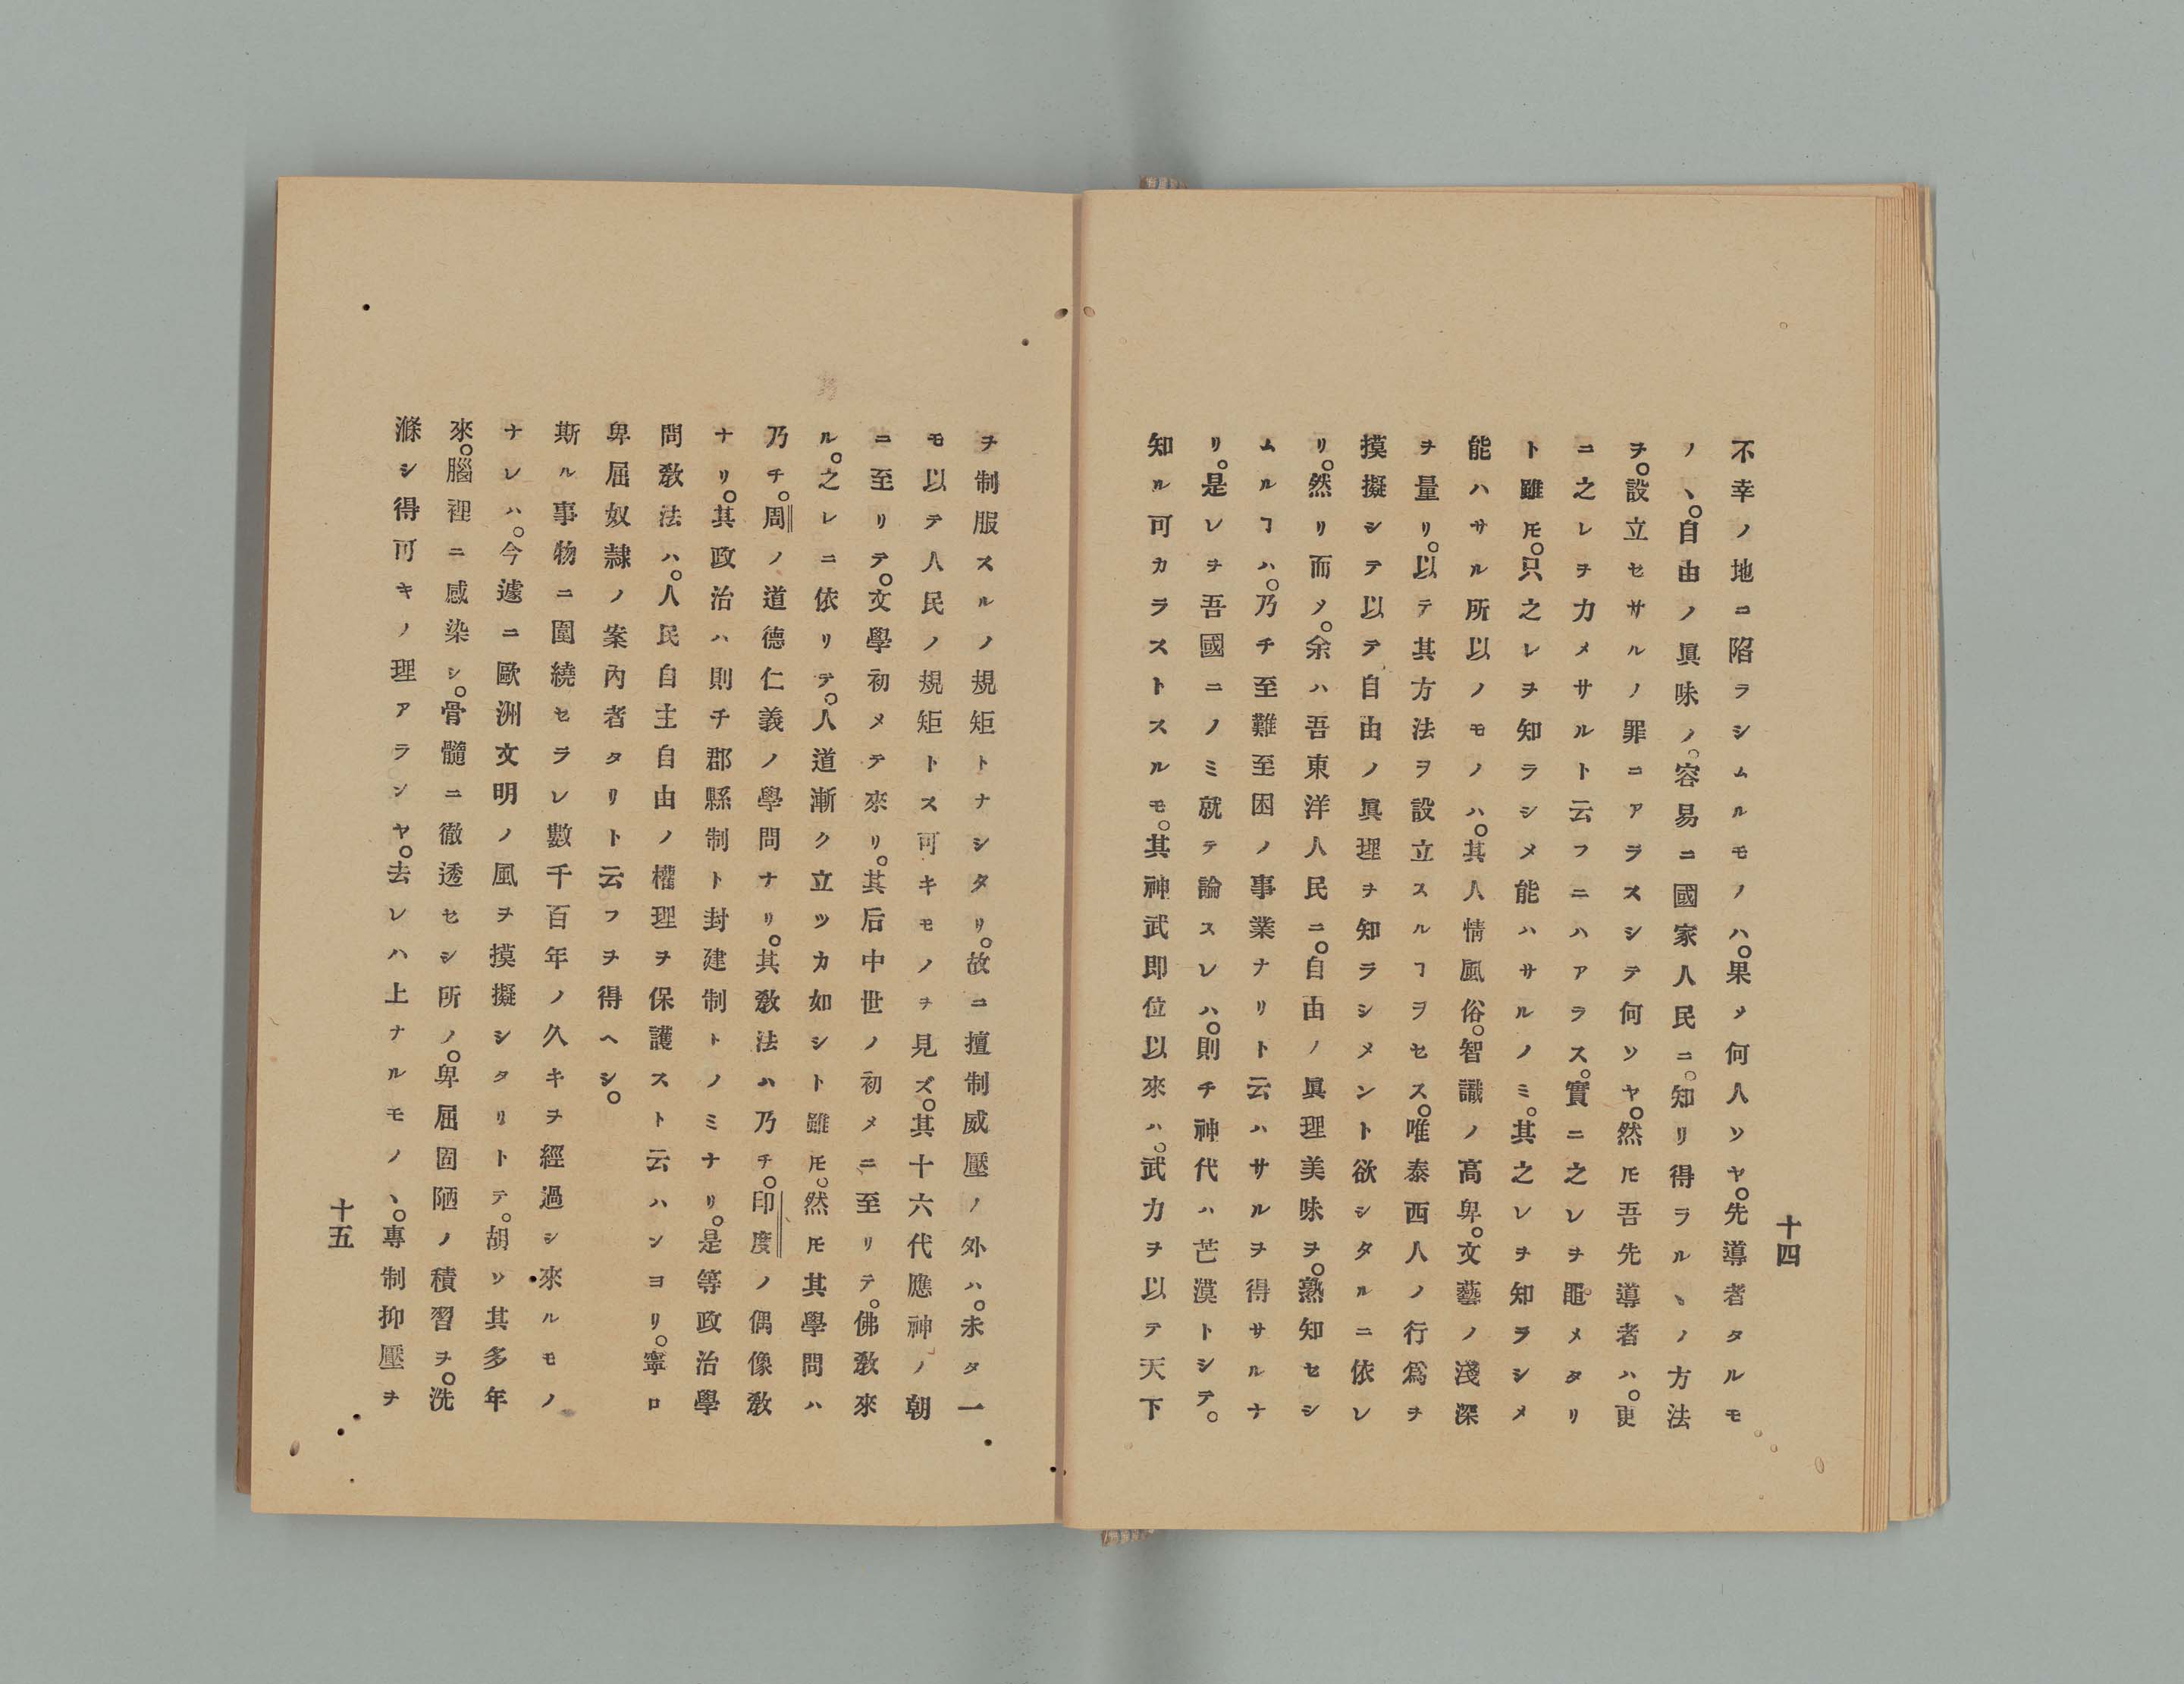 十四
不幸ノ地ニ陷ラシムルモノハ。果〆何人ソヤ。先導者タルモ
ノヽ。自由ノ眞味ノ。容易ニ國家人民ニ。知リ得ラルヽノ方法
ヲ。設立セサルノ罪ニアラスシテ何ソヤ。然𪜈吾先導者ハ。更
ニ之レヲ力メサルト云フニハアラス。實ニ之レヲ黽メタリ
ト雖𪜈。只之レヲ知ラシメ能ハサルノミ。其之レヲ知ラシメ
能ハサル所以ノモノハ。其人情風俗。智識ノ高卑。文藝ノ淺深
ヲ量リ。以テ其方法ヲ設立スルヿヲセス。唯泰西人ノ行爲ヲ
摸擬シテ以テ自由ノ眞理ヲ知ラシメント欲シタルニ依レ
リ。然リ而〆。余ハ吾東洋人民ニ。自由ノ眞理美味ヲ。熟知セシ
ムルヿハ。乃チ至難至困ノ事業ナリト云ハサルヲ得サルナ
リ。是レヲ吾國ニノミ就テ論スレハ。則チ神代ハ芒漠トシテ。
知ル可カラストスルモ。其神武即位以來ハ。武力ヲ以テ天下
ヲ制服スルノ規矩トナシタリ。故ニ擅制威壓ノ外ハ。未タ一
モ以テ人民ノ規矩トス可キモノヲ見ズ。其十六代應神ノ朝
ニ至リテ。文學初メテ來リ。其后中世ノ初メニ至リテ。佛敎來
ル。之レニ依リテ。人道漸ク立ツカ如シト雖𪜈。然𪜈其學問ハ
乃チ。周ノ道德仁義ノ學問ナリ。其敎法ハ乃チ。印度ノ偶像敎
ナリ。其政治ハ則チ郡縣制ト封建制トノミナリ。是等政治學
問敎法ハ。人民自主自由ノ權理ヲ保護スト云ハンヨリ。寧ロ
卑屈奴隸ノ案內者タリト云フヲ得ヘシ。
斯ル事物ニ圍繞セラレ數千百年ノ久キヲ經過シ來ルモノ
ナレハ。今遽ニ歐洲文明ノ風ヲ摸擬シタリトテ。胡ソ其多年
來。腦裡ニ感染シ。骨髓ニ徹透セシ所ノ。卑屈固陋ノ積習ヲ。洗
滌シ得可キノ理アランヤ。去レハ上ナルモノヽ。專制抑壓ヲ
十五